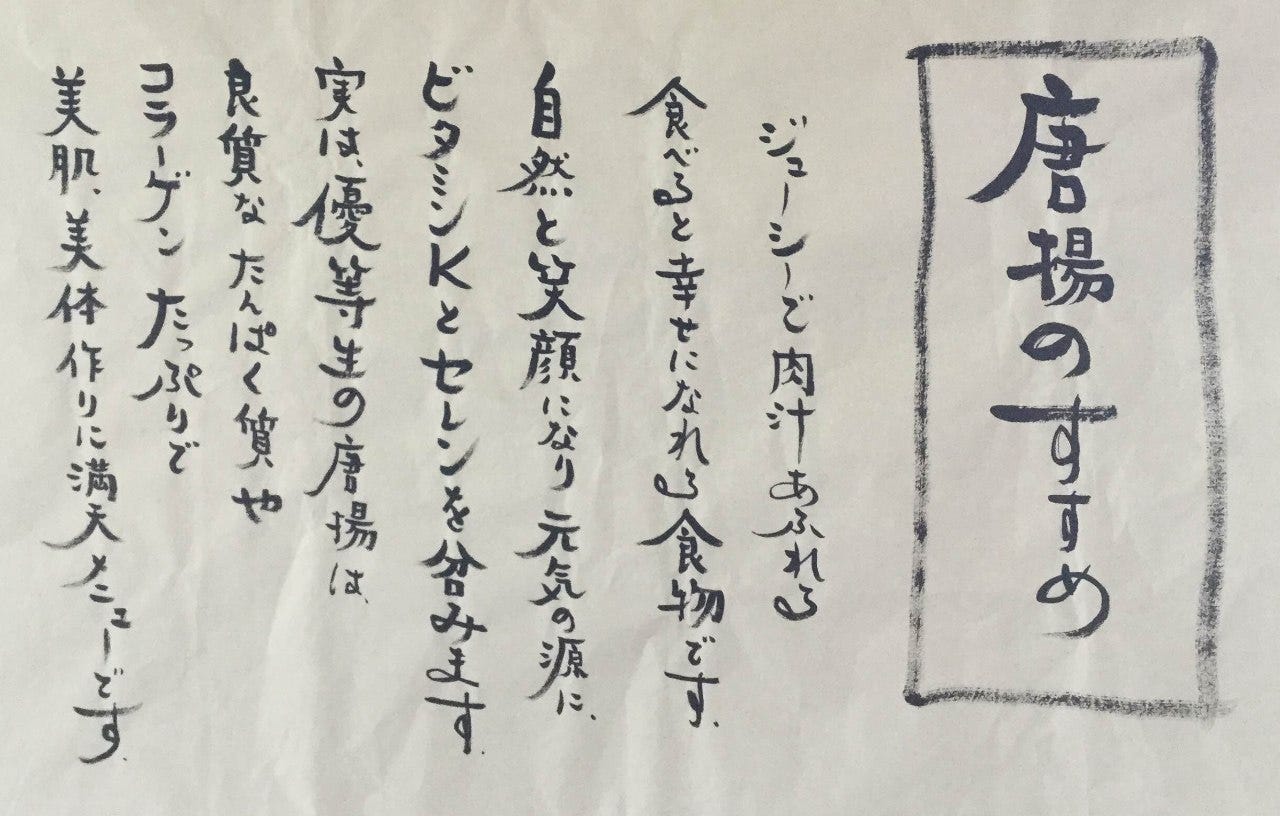 唐揚のすすめ
ジューシーで肉汁あふれる
食べると幸せになれる食物です。
自然と笑顔になり元気の源に、
ビタミンKとセレンを含みます.
実は、優等生の唐揚は、
良質なたんぱく質や
コラーゲンたっぷりで
美肌、美体作りに満天メニューです.